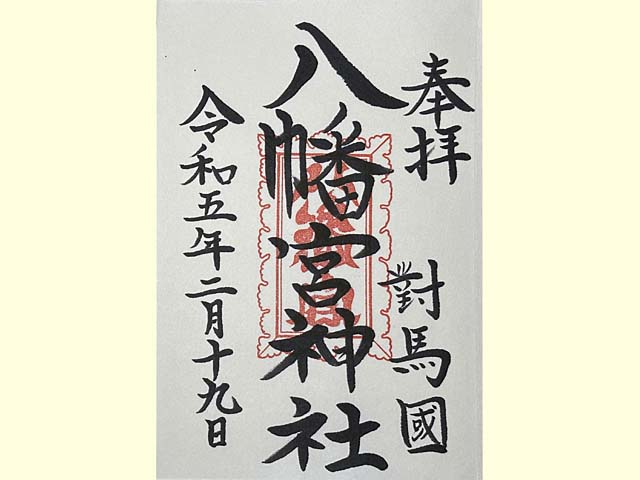 奉拝
對馬國
八幡宮神社
令和五年二月十九日